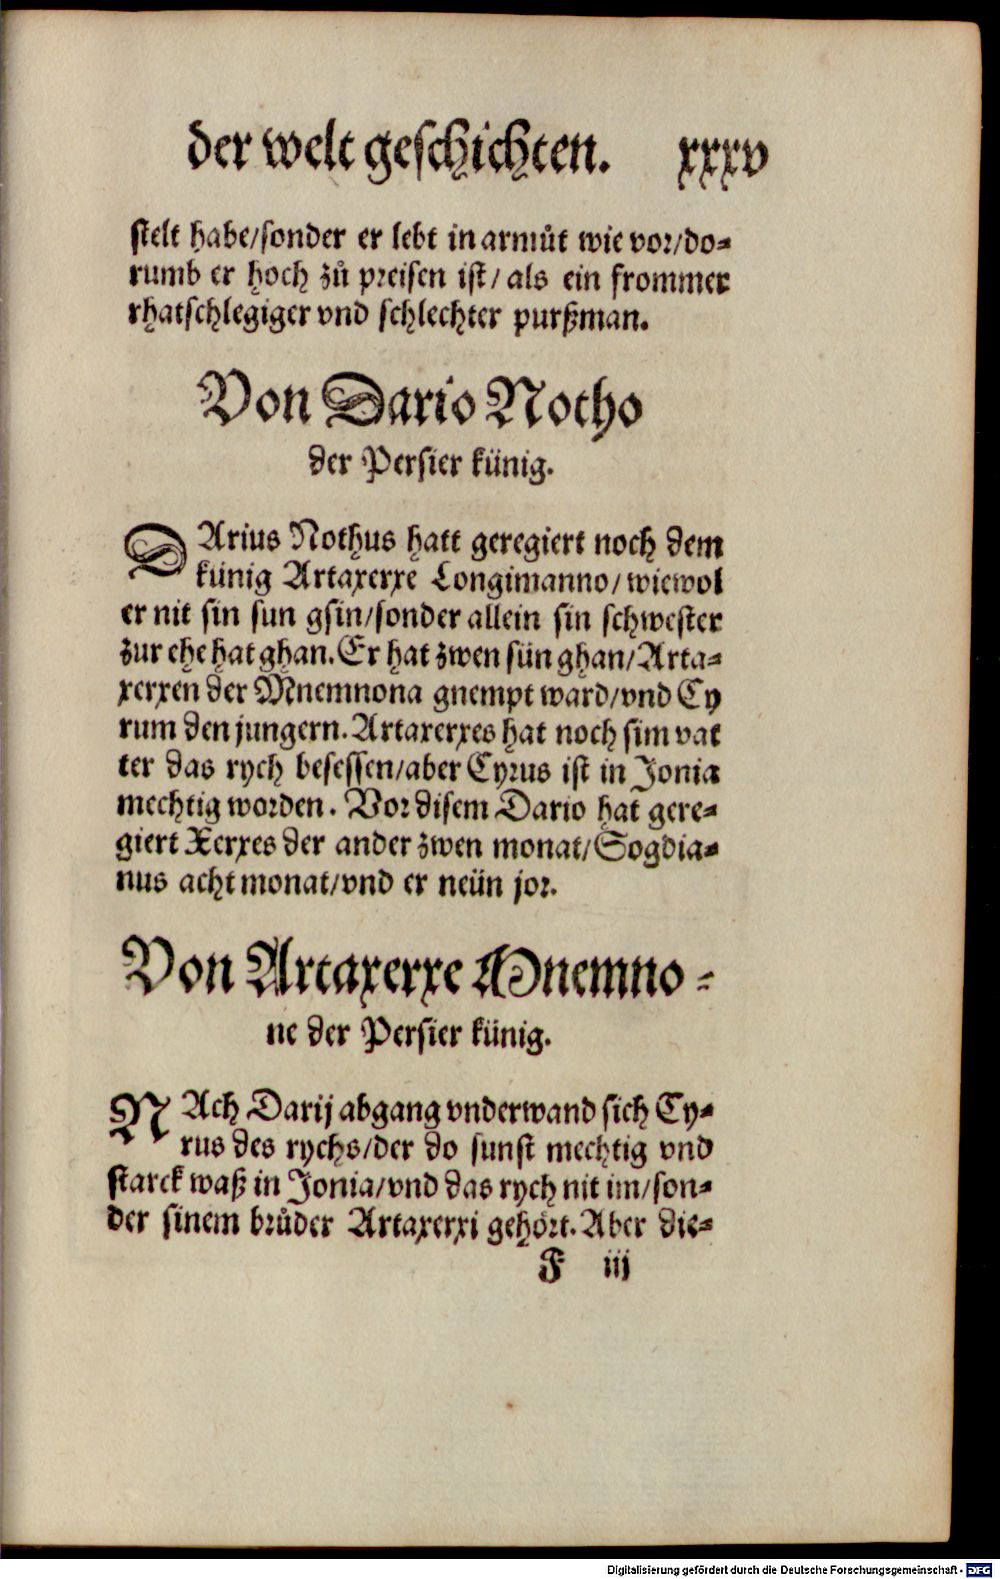 der welt geschichten. xxxv
stelt habe/sonder er lebt in armůt wie vor/do-
rumb er hoch zů preisen ist/ als ein frommer
rhatschlegiger vnd schlechter purßman.
Von Dario Notho
der Persier künig.
DArius Nothus hatt geregiert noch dem
künig Artaxerxe Longimanno/ wiewol
er nit sin sun gsin/sonder allein sin schwester
zur ehe hat ghan. Er hat zwen sün ghan/Arta-
xerxen der Mnemnona gnempt ward/vnd Cy
rum den jungern. Artaxerxes hat noch sim vat
ter das rych besessen/aber Cyrus ist in Jonia
mechtig worden. Vor disem Dario hat gere-
giert Xerxes der ander zwen monat/Sogdia-
nus acht monat/vnd er neün jor.
Von Artaxerxe Mnemno-
ne der Persier künig.
NAch Darij abgang vnderwand sich Cy-
rus des rychs/der do sunst mechtig vnd
starck waß in Jonia/vnd das rych nit im/son-
der sinem brůder Artaxerxi gehört. Aber die-
F iij
Digitalisierung gefördert durch die Deutsche Forschungsgemeinschaft - DFG